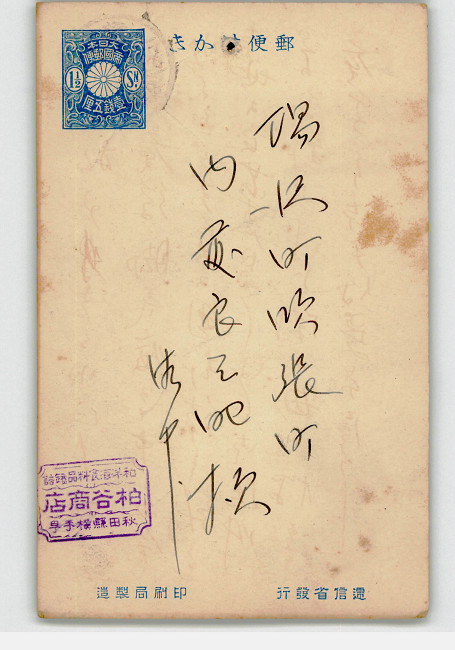 郵便はかき
大日本
帝國郵便
1½ Sn.
壹錢五厘
湯沢町吹張町
内藤良三郎様
店中
和洋酒食料品雑詰
柏谷商店
秋田縣横手早
印刷局製造
遞信省發行